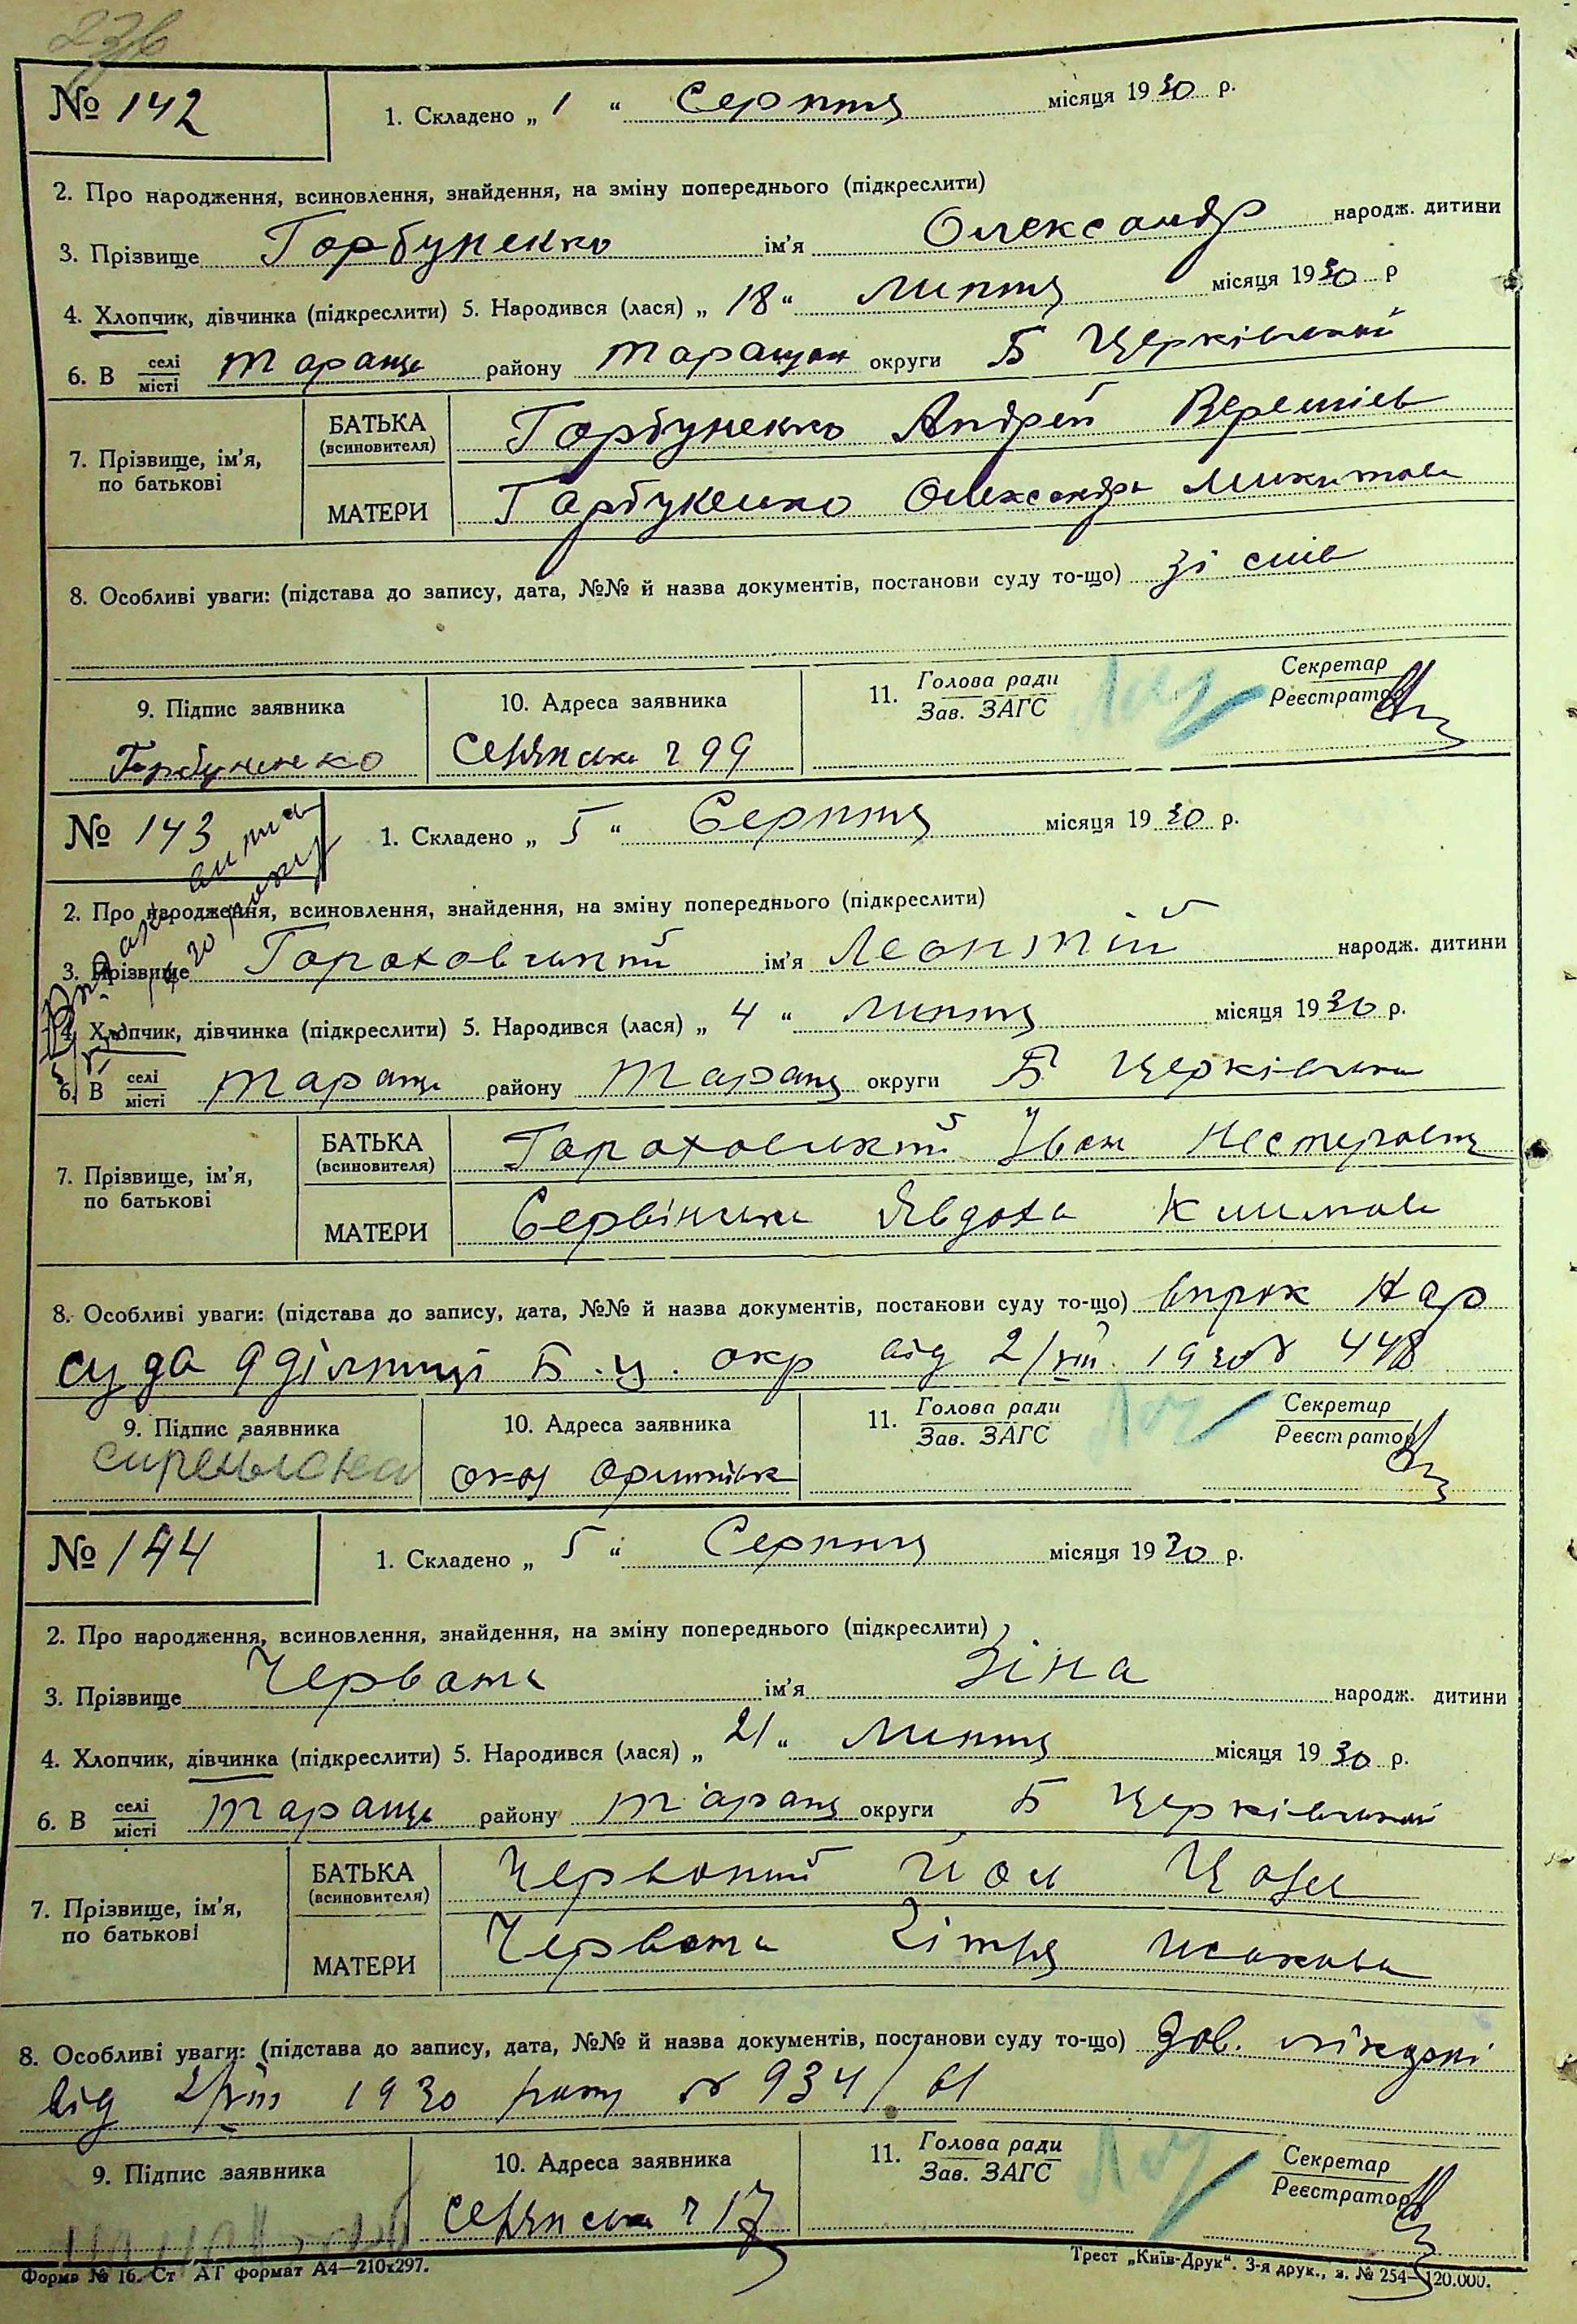 236
№ 142
1. Складено „ 1 “ Серпня місяця 1930 р.
2. Про народження, всиновлення, знайдення, на зміну попереднього (підкреслити)
3. Прізвище Горбуненко ім’я Олександр народж. дитини
4. Хлопчик, дівчинка (підкреслити) 5. Народився (лася) „ 18 “ Липня місяця 1930 р
6. В селі/місті Тараща району Таращан округи Б Церківської
7. Прізвище, ім’я, по батькові
БАТЬКА (всиновителя) Горбуненко Андрей
МАТЕРИ Горбуненко Олександра Микитов
8. Особливі уваги: (підстава до запису, дата, №№ й назва документів, постанови суду то-що) зі слів
9. Підпис заявника
Горбуненко
10. Адреса заявника
ч 99
11. Голова ради
Зав. ЗАГС
Секретар
Реєстратор
№ 143
1. Складено „ 5 “ Серпня місяця 1930 р.
2. Про народження, всиновлення, знайдення, на зміну попереднього (підкреслити)
3. Прізвище Гороховський ім’я Леонтій народж. дитини
4. Хлопчик, дівчинка (підкреслити) 5. Народився (лася) „ 4 “ Липня місяця 1930 р.
6. В селі/місті Тараща району Таращ округи Б Церківська
7. Прізвище, ім’я, по батькові
БАТЬКА (всиновителя) Гороховський Іван Нестерович
МАТЕРИ Явдоха
8. Особливі уваги: (підстава до запису, дата, №№ й назва документів, постанови суду то-що) вирок Нар
суда 9 дільниці Б. Ц. окр від 2/VIII 1930 № 448
9. Підпис заявника
10. Адреса заявника
11. Голова ради
Зав. ЗАГС
Секретар
Реєстратор
№ 144
1. Складено „ 5 “ Серпня місяця 1930 р.
2. Про народження, всиновлення, знайдення, на зміну попереднього (підкреслити)
3. Прізвище Червона ім’я Зіна народж. дитини
4. Хлопчик, дівчинка (підкреслити) 5. Народився (лася) „ 21 “ Липня місяця 1930 р.
6. В селі/місті Тараща району Таращ округи Б Церківської
7. Прізвище, ім’я, по батькові
БАТЬКА (всиновителя) Червоний
МАТЕРИ Червона
8. Особливі уваги: (підстава до запису, дата, №№ й назва документів, постанови суду то-що) Дов. лікарні
від 2/VIII 1930 року № 934/61
9. Підпис заявника
10. Адреса заявника
ч 17
11. Голова ради
Зав. ЗАГС
Секретар
Реєстратор
Форма № 16. Ст АТ формат А4—210х297.
Трест „Київ-Друк“. 3-я друк., з. № 254—120.000.